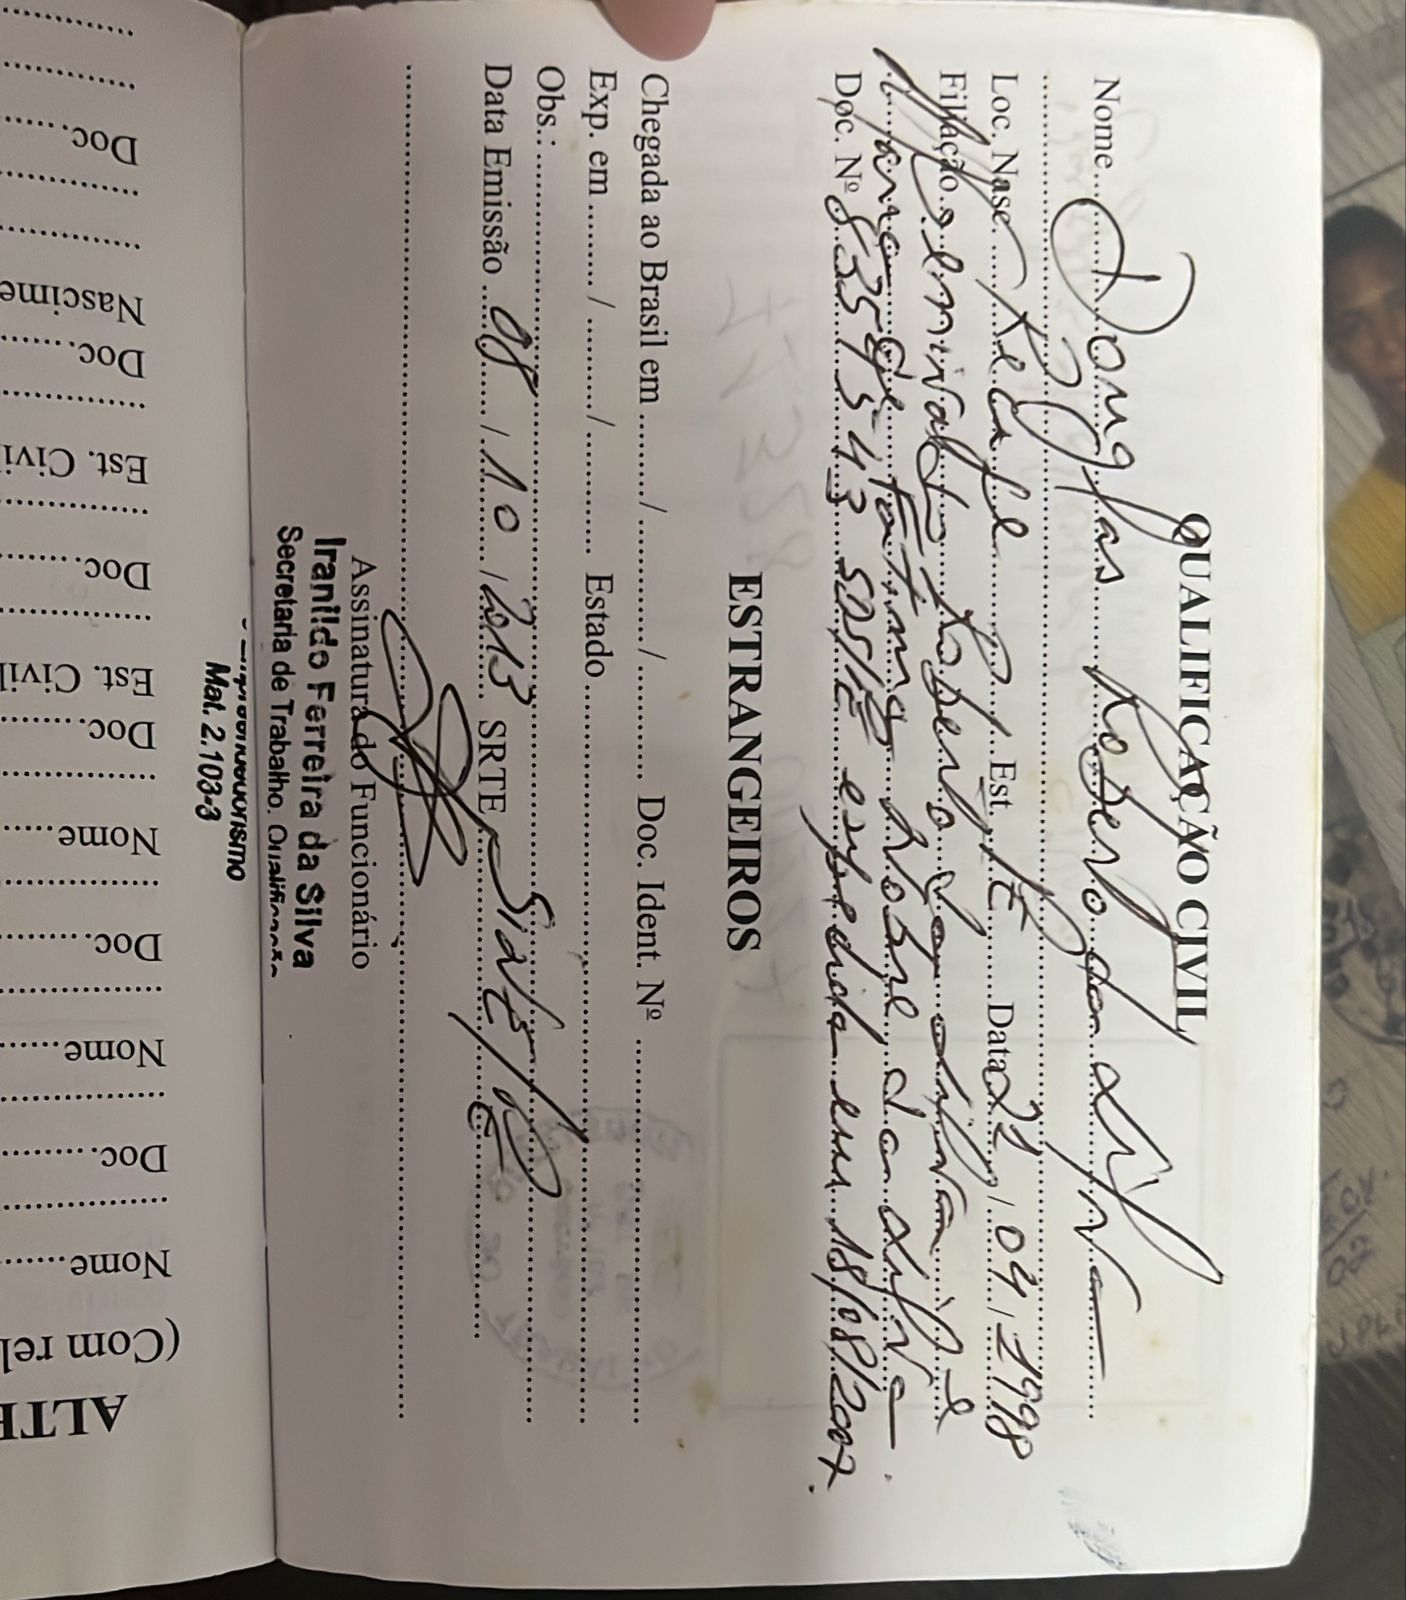 QUALIFICAÇÃO CIVIL
Nome Douglas Roberto da Silva
Loc. Nasc Recife Est. PE Data 21, 04, 1998
Filiação Roberto da Silva e
Maria de Fátima da Silva
Doc. Nº 8354543 SDS/PE expedida em 18/08/2007.
ESTRANGEIROS
Chegada ao Brasil em ....../....../...... Doc. Ident. Nº
Exp. em ....../....../...... Estado
Obs.:
Data Emissão 08 / 10 / 2013 SRTE
Assinatura do Funcionário
Iranildo Ferreira da Silva
Secretaria de Trabalho, Qualificação
Mat. 2.103-3
ALTE
(Com rel
Nome
Doc.
Nome
Doc.
Nome
Doc.
Est. Civil
Doc.
Est. Civi
Doc.
Nascime
Doc.